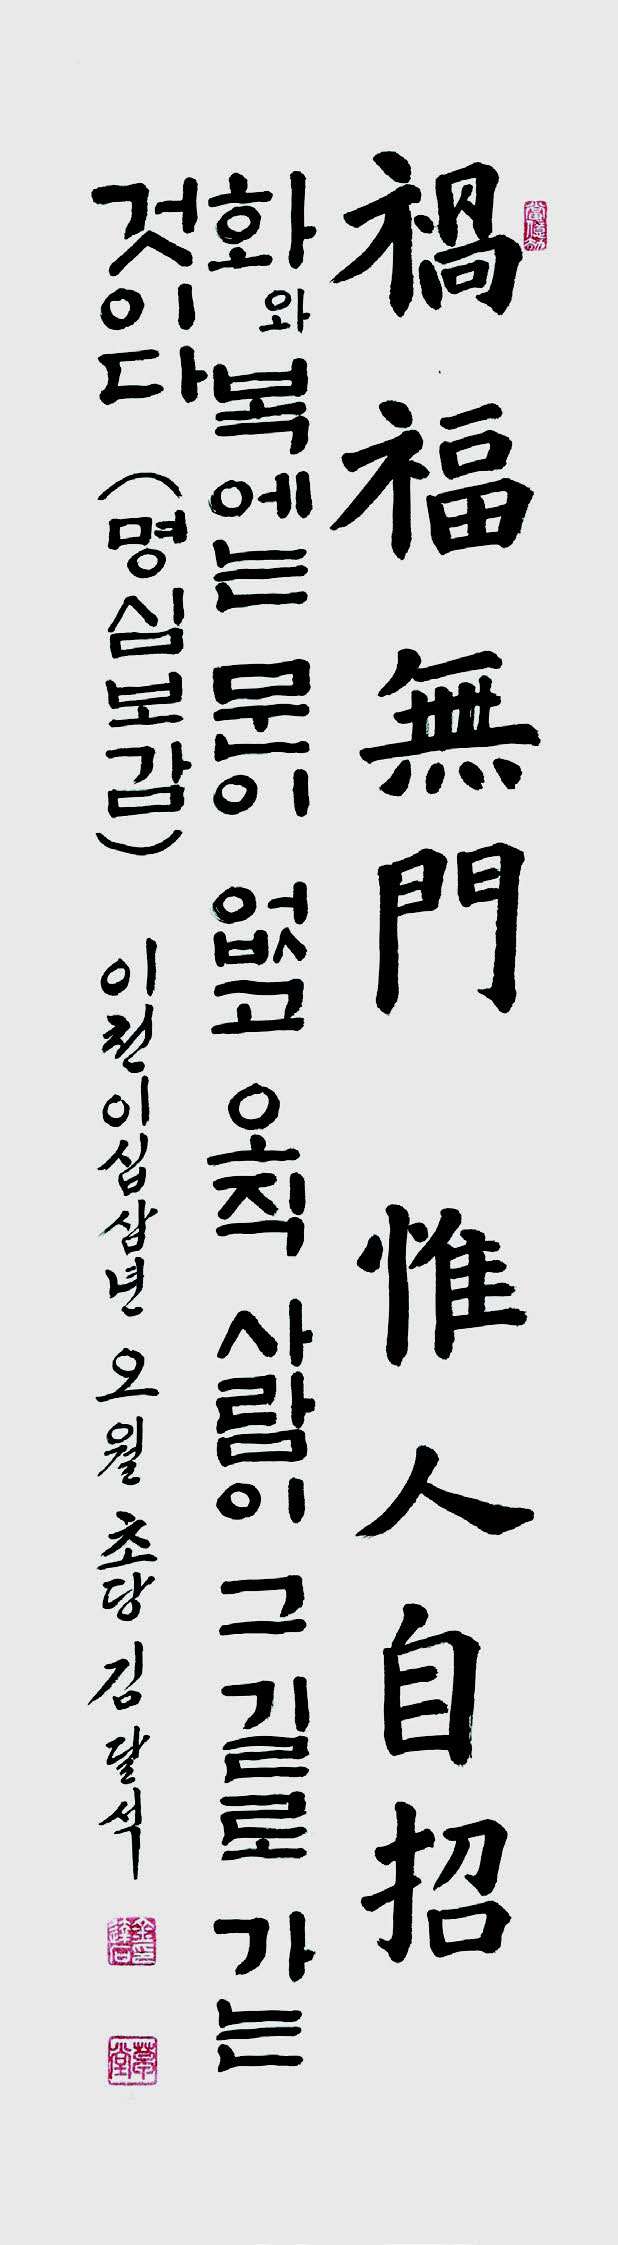 禍福無門 惟人自招
화와 복에는 문이 없고 오직 사람이 그 길로 가는
것이다 (명심보감) 이천이십삼년 오월 초당 김달석